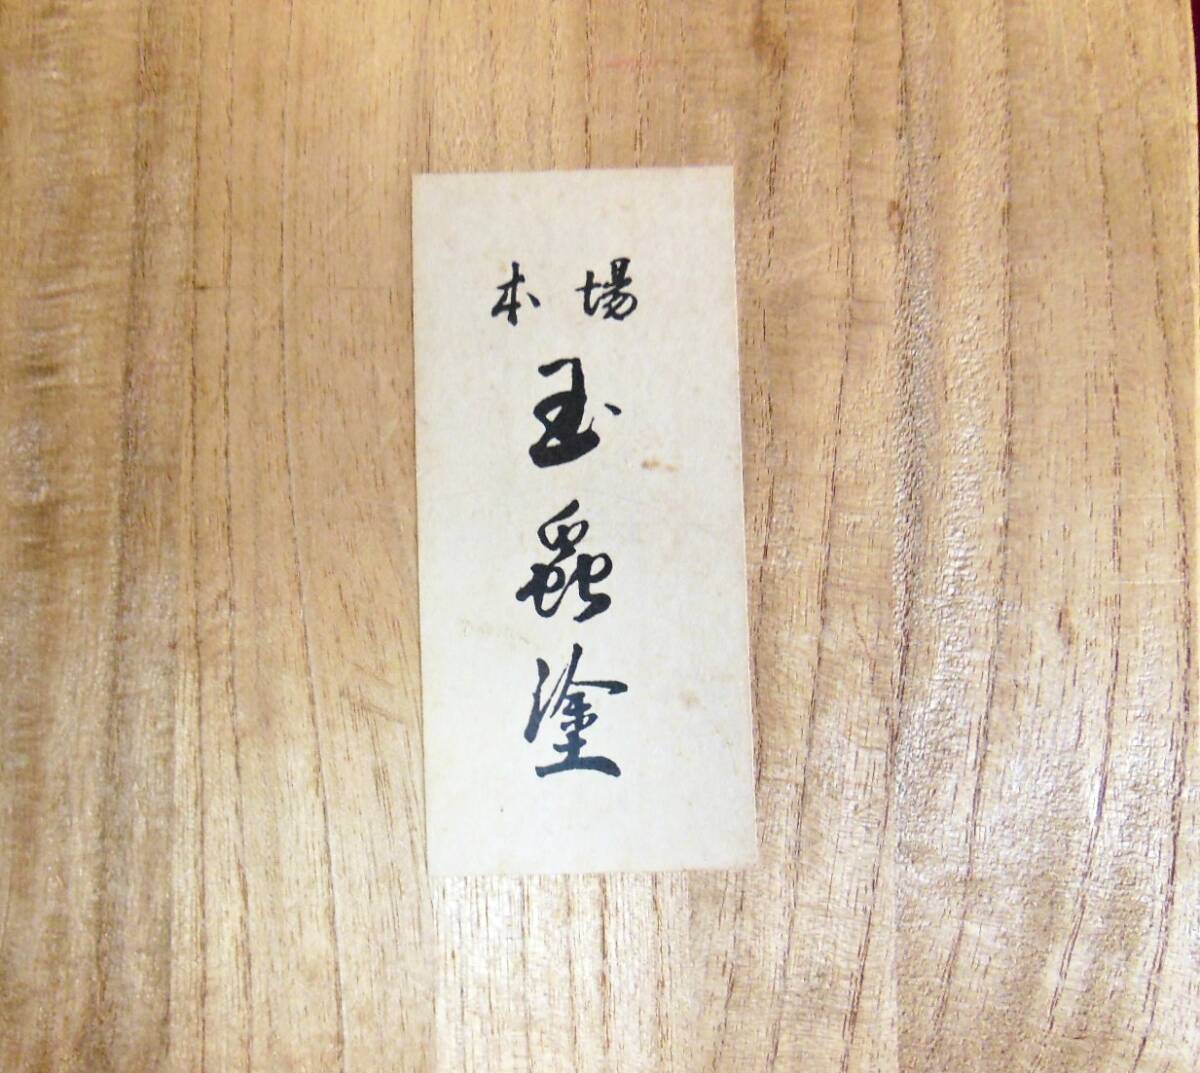 本場
玉蟲塗